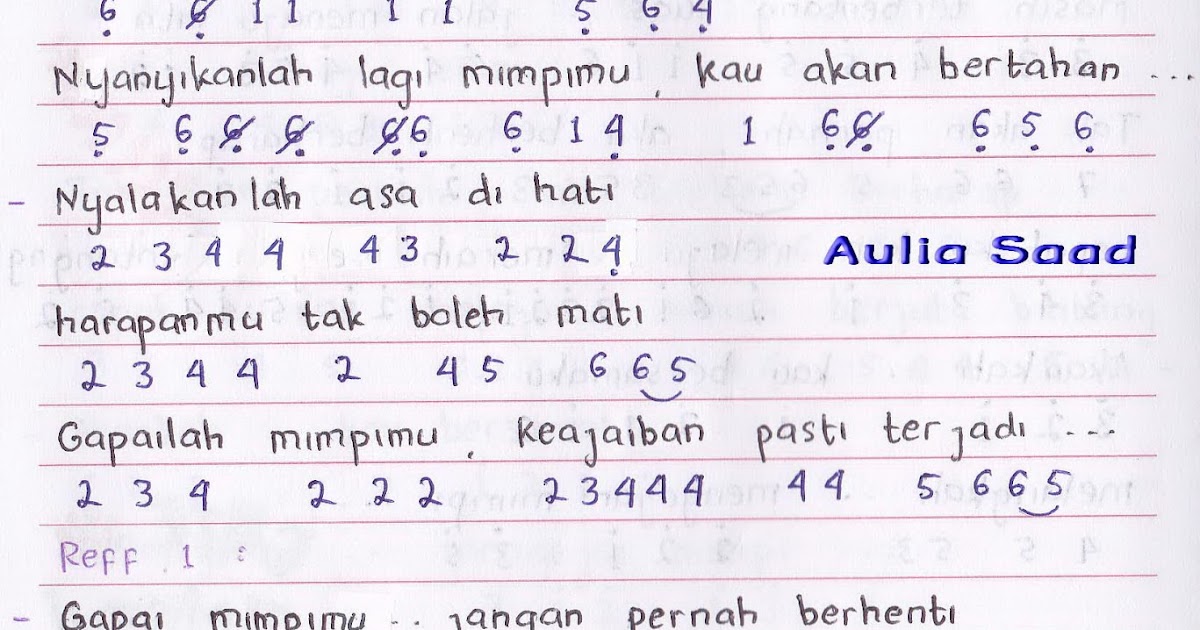 6 6 1 1 1 1 5 6 4
Nyanyikanlah lagi mimpimu, kau akan bertahan ...
5 6 6 6 6 6 6 1 4 1 6 6 6 5 6
- Nyalakanlah asa di hati
2 3 4 4 4 3 2 2 4
Aulia Saad
harapanmu tak boleh mati
2 3 4 4 2 4 5 6 6 5
Gapailah mimpimu, keajaiban pasti terjadi ...
2 3 4 2 2 2 2 3 4 4 4 4 4 5 6 6 5
Reff 1 :
- Gapai mimpimu .. jangan pernah berhenti